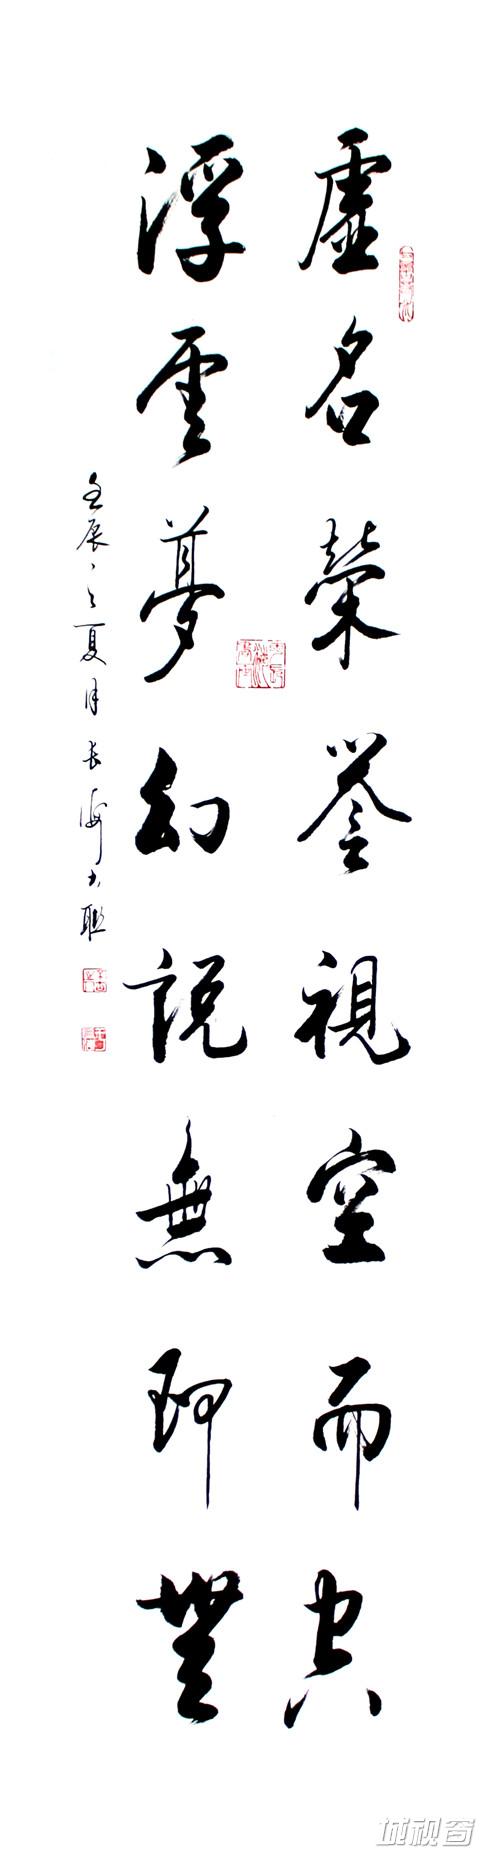 虛名榮譽視空而空
浮雲夢幻說無即無
壬辰之夏月長海書聯
城视窗